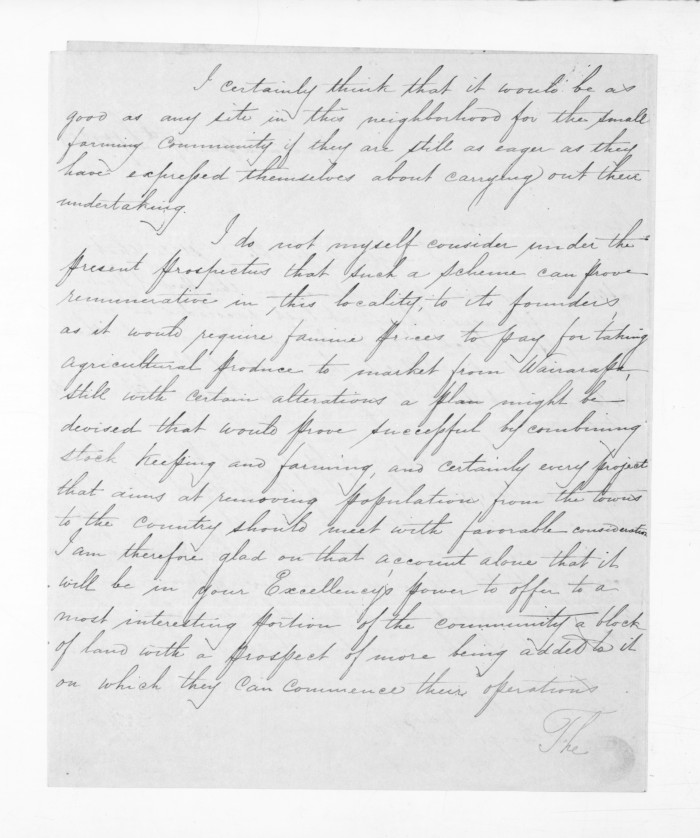 I certainly think that it would be as
good as any site in this neighborhood for the small
farming community if they are still as eager as they
have expressed themselves about carrying out their
undertaking.
I do not myself consider under the
present prospectus that such a scheme can prove
remunerative in this locality, to its founders,
as it would require famine prices to pay for taking
agricultural produce to market from Wairarapa,
still with certain alterations a plan might be
devised that would prove successful by combining
stock keeping and farming, and certainly every project
that aims at removing population from the towns
to the country should meet with favorable consideration
I am therefore glad on that account alone that it
will be in your Excellency's power to offer to a
most interesting portion of the community a block
of land with a prospect of more being added to it
on which they can commence their operations
The